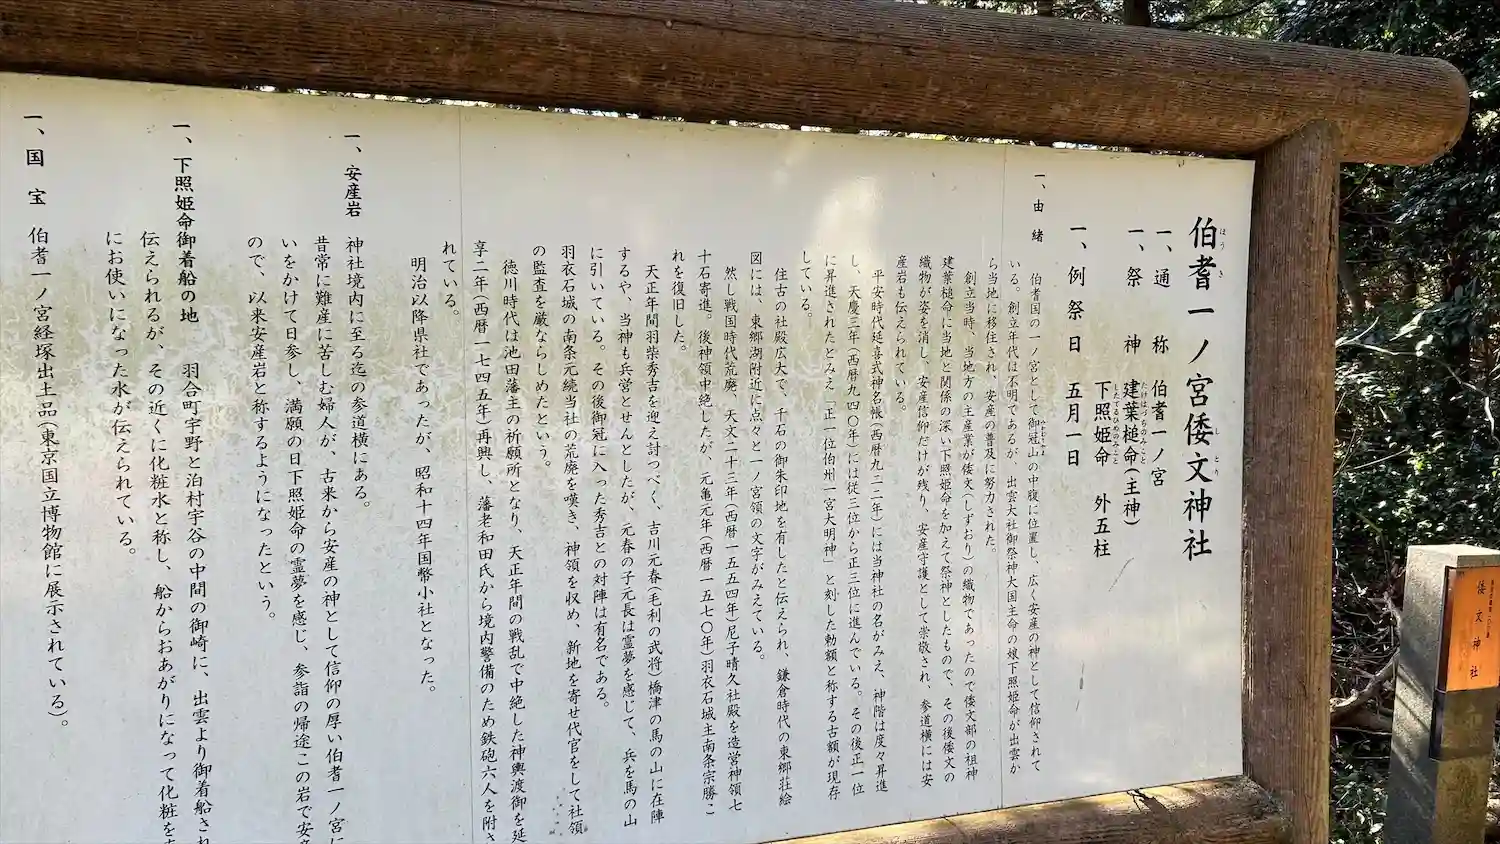 伯耆一ノ宮倭文神社
ほうき
しとり
一、通称 伯耆一ノ宮
一、祭神 建葉槌命(主神)
たけはづちのみこと
下照姫命 外五柱
したてるひめのみこと
一、例祭日 五月一日
一、由緒
伯耆国の一ノ宮として御冠山の中腹に位置し、広く安産の神として信仰されて
いる。創立年代は不明であるが、出雲大社御祭神大国主命の娘下照姫命が出雲か
ら当地に移住され、安産の普及に努力された。
創立当時、当地方の主産業が倭文(しずおり)の織物であったので倭文部の祖神
建葉槌命に当地と関係の深い下照姫命を加えて祭神としたもので、その後倭文の
織物が姿を消し、安産信仰だけが残り、安産守護として崇敬され、参道横には安
産岩も伝えられている。
平安時代延喜式神名帳(西暦九二二年)には当神社の名がみえ、神階は度々昇進
し、天慶三年(西暦九四〇年)には従三位から正三位に進んでいる。その後正一位
に昇進されたとみえ「正一位伯州一宮大明神」と刻した勅額と称する古額が現存
している。
往古の社殿広大で、千石の御朱印地を有したと伝えられ、鎌倉時代の東郷荘絵
図には、東郷湖附近に点々と一ノ宮領の文字がみえている。
然し戦国時代荒廃、天文二十三年(西暦一五五四年)尼子晴久社殿を造営神領七
十石寄進。後神領中絶したが、元亀元年(西暦一五七〇年)羽衣石城主南条宗勝こ
れを復旧した。
天正年間羽柴秀吉を迎え討つべく、吉川元春(毛利の武将)橋津の馬の山に在陣
するや、当神も兵営とせんとしたが、元春の子元長は霊夢を感じて、兵を馬の山
に引いている。その後御冠に入った秀吉との対陣は有名である。
羽衣石城の南条元続当社の荒廃を嘆き、神領を収め、新地を寄せ代官をして社領
の監査を厳ならしめたという。
徳川時代は池田藩主の祈願所となり、天正年間の戦乱で中絶した神輿渡御を延
享二年(西暦一七四五年)再興し、藩老和田氏から境内警備のため鉄砲六人を附さ
れている。
明治以降県社であったが、昭和十四年国幣小社となった。
一、安産岩 神社境内に至る迄の参道横にある。
昔常に難産に苦しむ婦人が、古来から安産の神として信仰の厚い伯耆一ノ宮に
いをかけて日参し、満願の日下照姫命の霊夢を感じ、参詣の帰途この岩で安産
ので、以来安産岩と称するようになったという。
一、下照姫命御着船の地 羽合町宇野と泊村宇谷の中間の御崎に、出雲より御着船され
伝えられるが、その近くに化粧水と称し、船からおあがりになって化粧を
にお使いになった水が伝えられている。
一、国宝 伯耆一ノ宮経塚出土品(東京国立博物館に展示されている)。
倭文神社